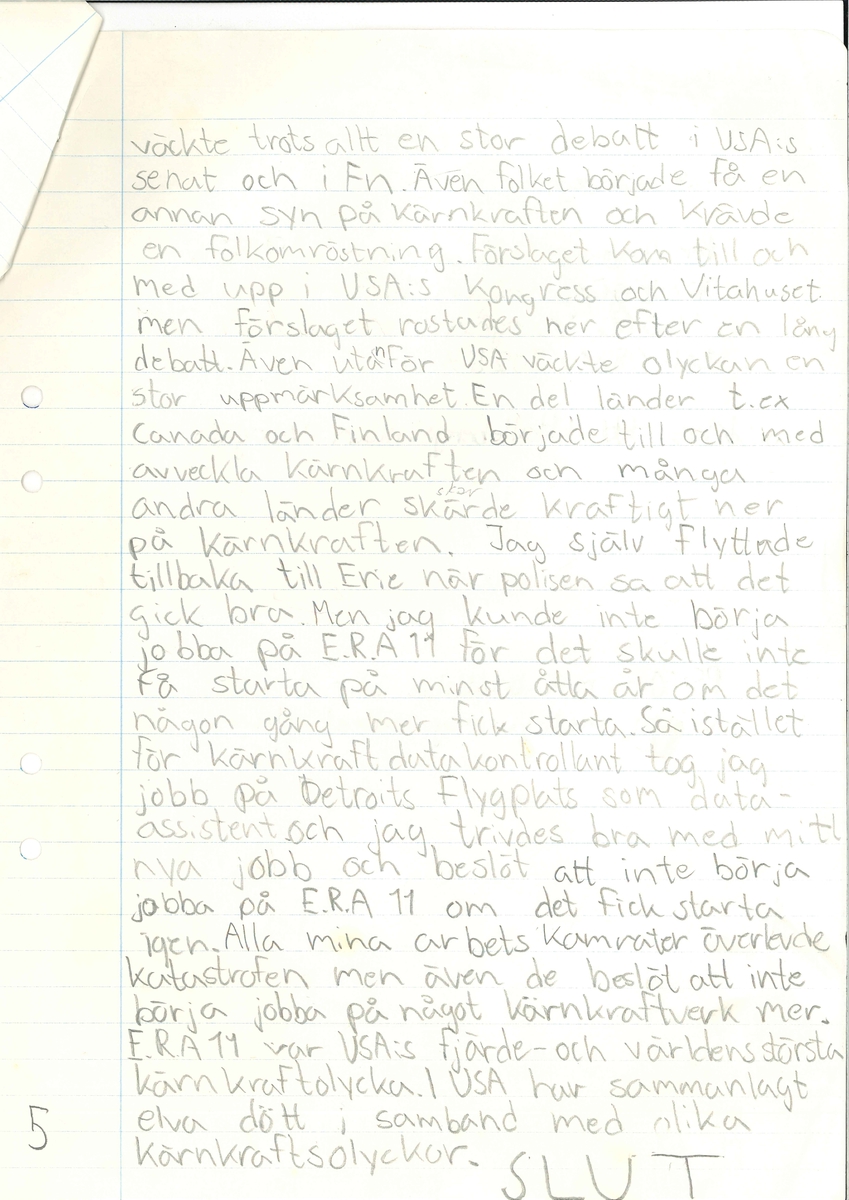 väckte trots allt en stor debatt i USA:s
senat och i Fn. Även folket började få en
annan syn på kärnkraften och krävde
en folkomröstning. Förslaget kom till och
med upp i USA:s kongress och Vitahuset
men förslaget rostades ner efter en lång
debatt. Även utanför USA väckte olyckan en
stor uppmärksamhet. En del länder t.ex
Canada och Finland började till och med
avveckla kärnkraften och många
andra länder skärde kraftigt ner
på kärnkraften. Jag själv flyttade
tillbaka till Erie när polisen sa att det
gick bra. Men jag kunde inte börja
jobba på E.R.A 11 för det skulle inte
få starta på minst åtta år om det
någon gång mer fick starta. Så istället
för kärnkraftdatakontrollant tog jag
jobb på Detroits Flygplats som data-
assistent och jag trivdes bra med mitt
nya jobb och beslöt att inte börja
jobba på E.R.A 11 om det fick starta
igen. Alla mina arbets kamrater överlevde
katastrofen men även de beslöt att inte
börja jobba på något kärnkraftverk mer.
E.R.A 11 var USA:s fjärde- och världens största
kärnkraftolycka. I USA har sammanlagt
elva dött i samband med olika
kärnkraftsolyckor. SLUT
5